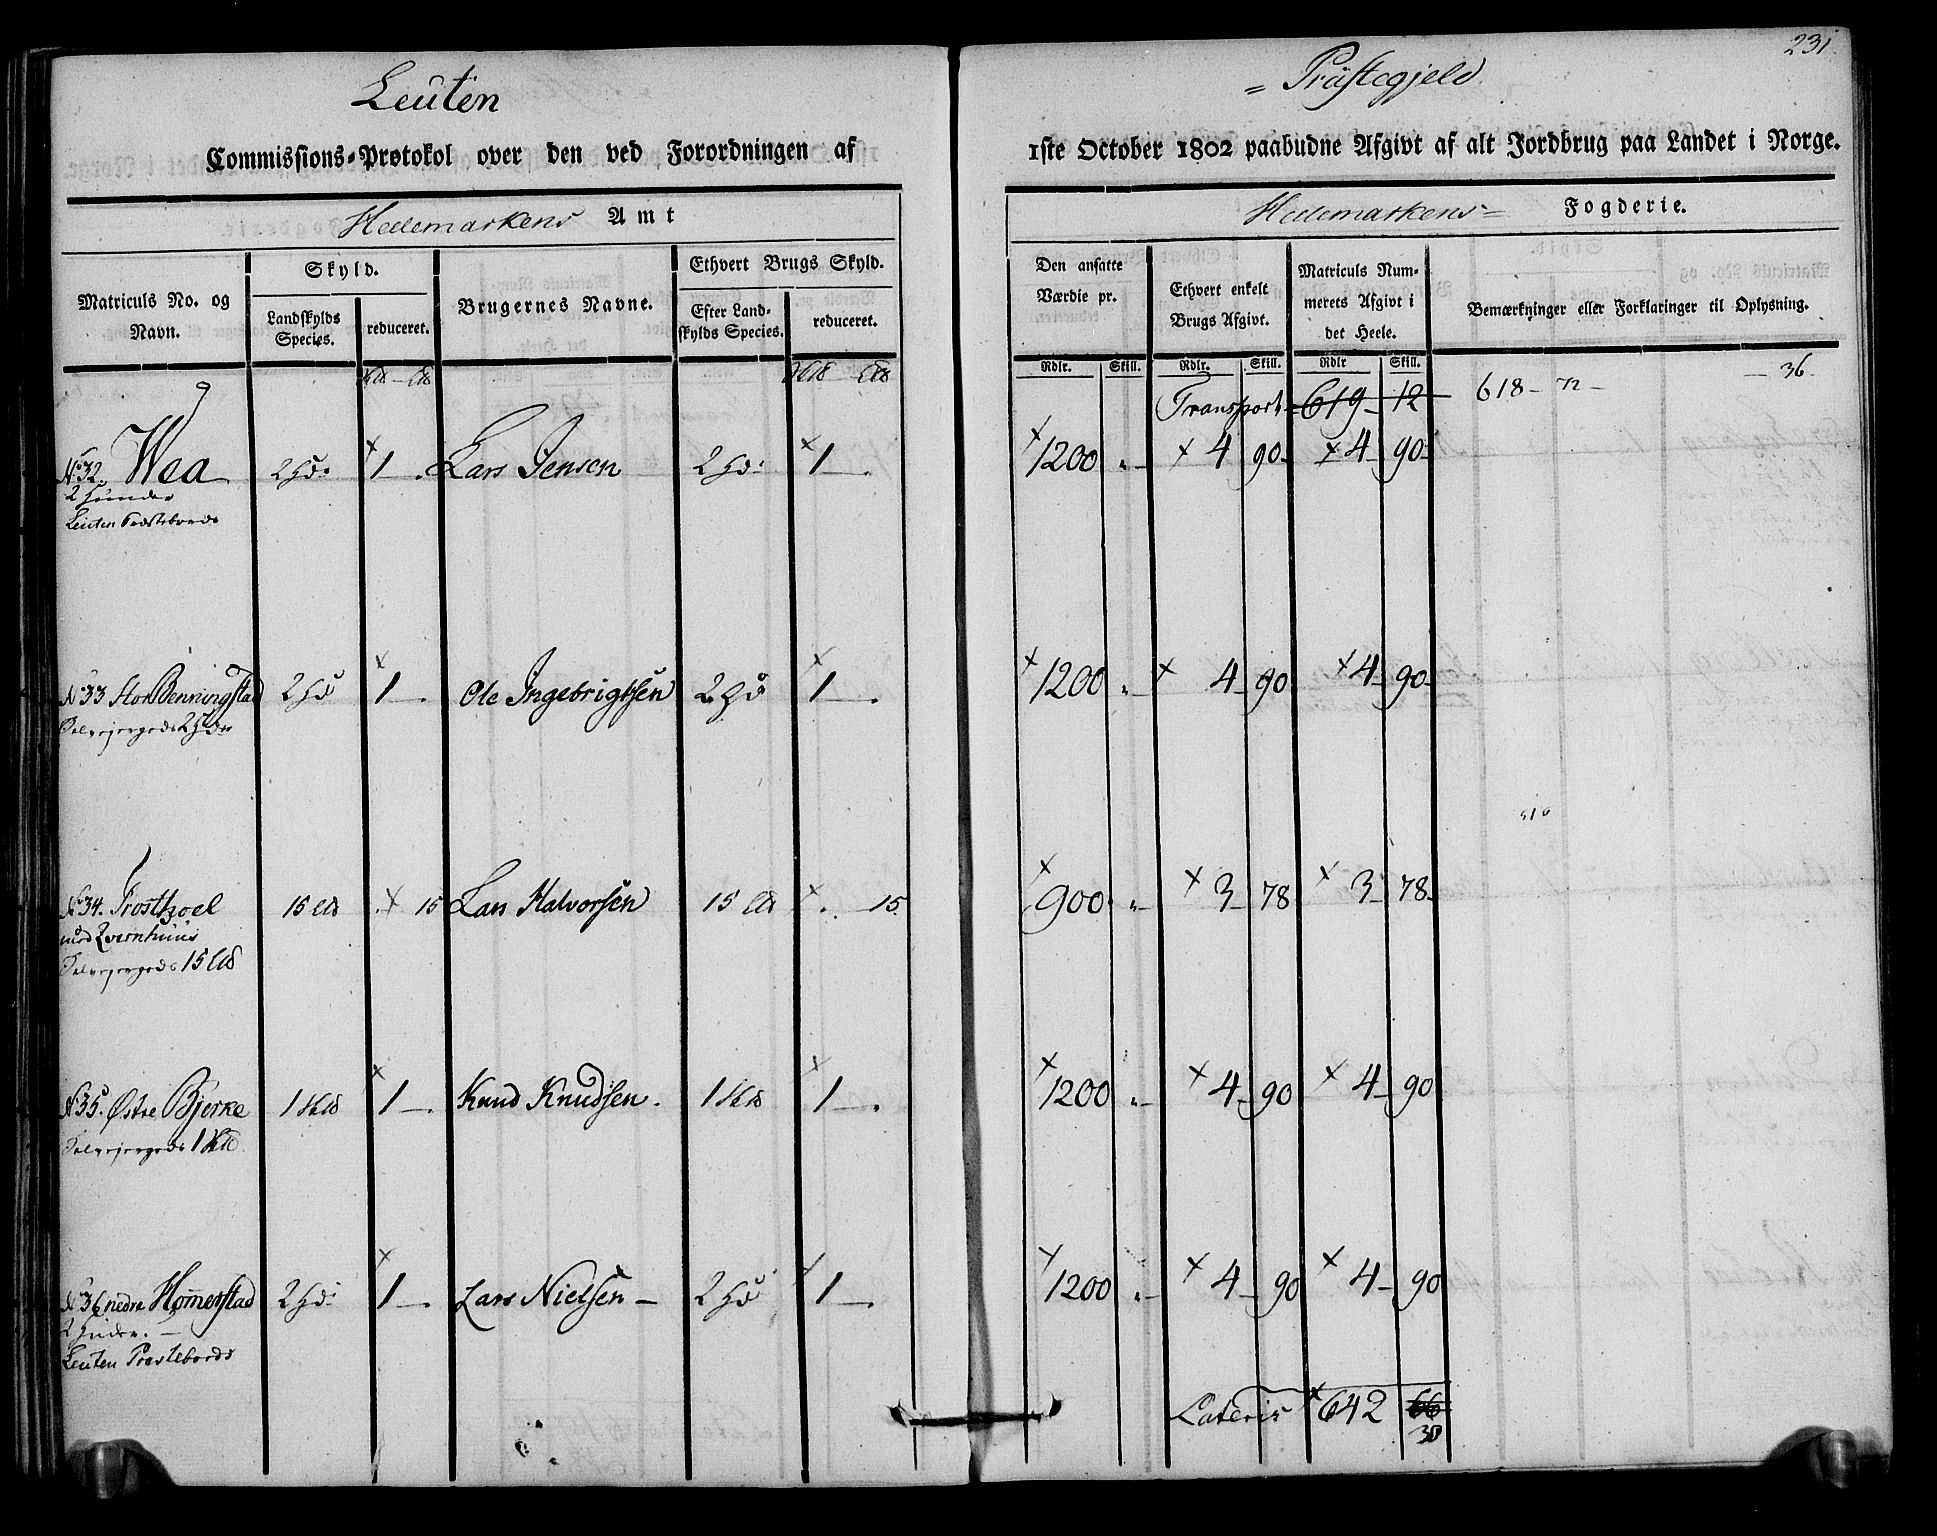 231
Leuten = Præstegjeld
Commissions-Protokol over den ved Forordningen af 1ste October 1802 paabudne Afgivt af alt Jordbrug paa Landet i Norge.
Hedemarkens Amt
Hedemarkens = Fogderie.
Matriculs No. og Navn.
Skyld.
Landskylds Species.
reduceret.
Brugernes Navne.
Ethvert Brugs Skyld.
Efter Landskylds Species.
reduceret.
Den ansatte Værdie pr.
Ethvert enkelt Brugs Afgivt.
Matriculs Nummerets Afgivt i det Heele.
Bemærkninger eller Forklaringer til Oplysning.
Rdlr. Skill. Rdlr. Skill. Rdlr Skill.
Transport 619 - 12 618 - 72 - - 36 -
No 32. Wea 2 Hd: 1 - . Lars Jensen 2 Hd: 1 - . 1200 " - 4 90 - 4 - 90 -
2 Huuder
Leuten Præstebords
No 33 Stor Benningstad 2 Hd 1 - . Ole Ingebrigtsen 2 Hd 1 - . 1200 " - 4 - 90 4 - 90 -
Selvejergods 2 Hder
No 34. Frosthoel 15 . 15 Lars Halvorsen 15 . 15 900 " - 3 - 78 3 - 78 -
med Qvernhuus
Selvejergods 15
No 35. Østre Bjerke 1 1 - . Knud Knudsen. 1 1 - . 1200 " - 4 - 90 4 - 90
Selvejergods 1
No 36 nedre Hommerstad 2 Hd: 1 - . Lars Nielsen - 2 Hd 1 - . 1200 " - 4 - 90 4 - 90
2 Huder. -
Leuten Præstebords
Lateris 642 66
30